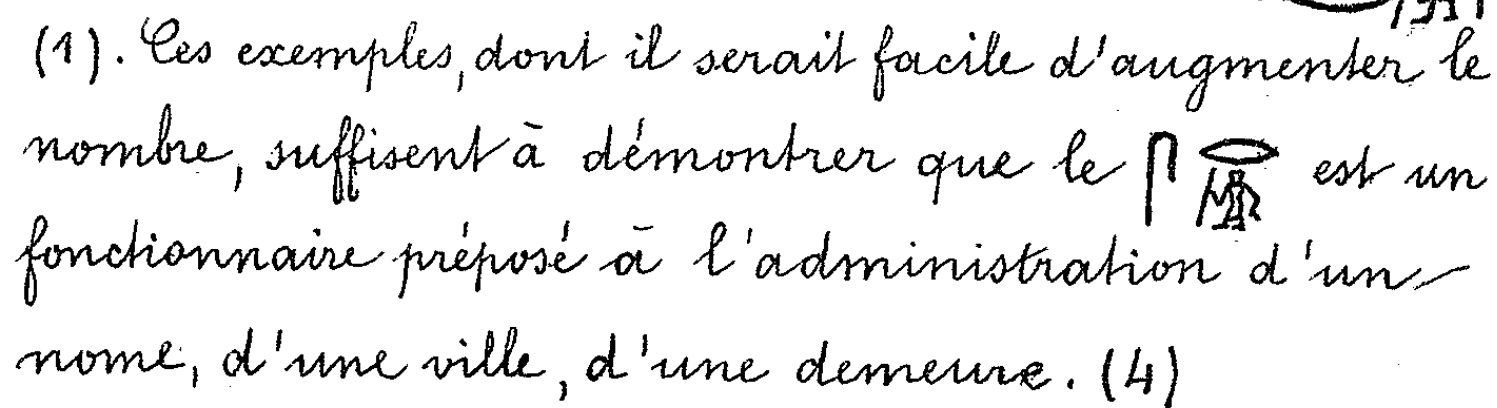 (1). Ces exemples, dont il serait facile d'augmenter le
nombre, suffisent à démontrer que le 𓋴𓂋 est un
fonctionnaire préposé à l'administration d'un
nome, d'une ville, d'une demeure. (4)